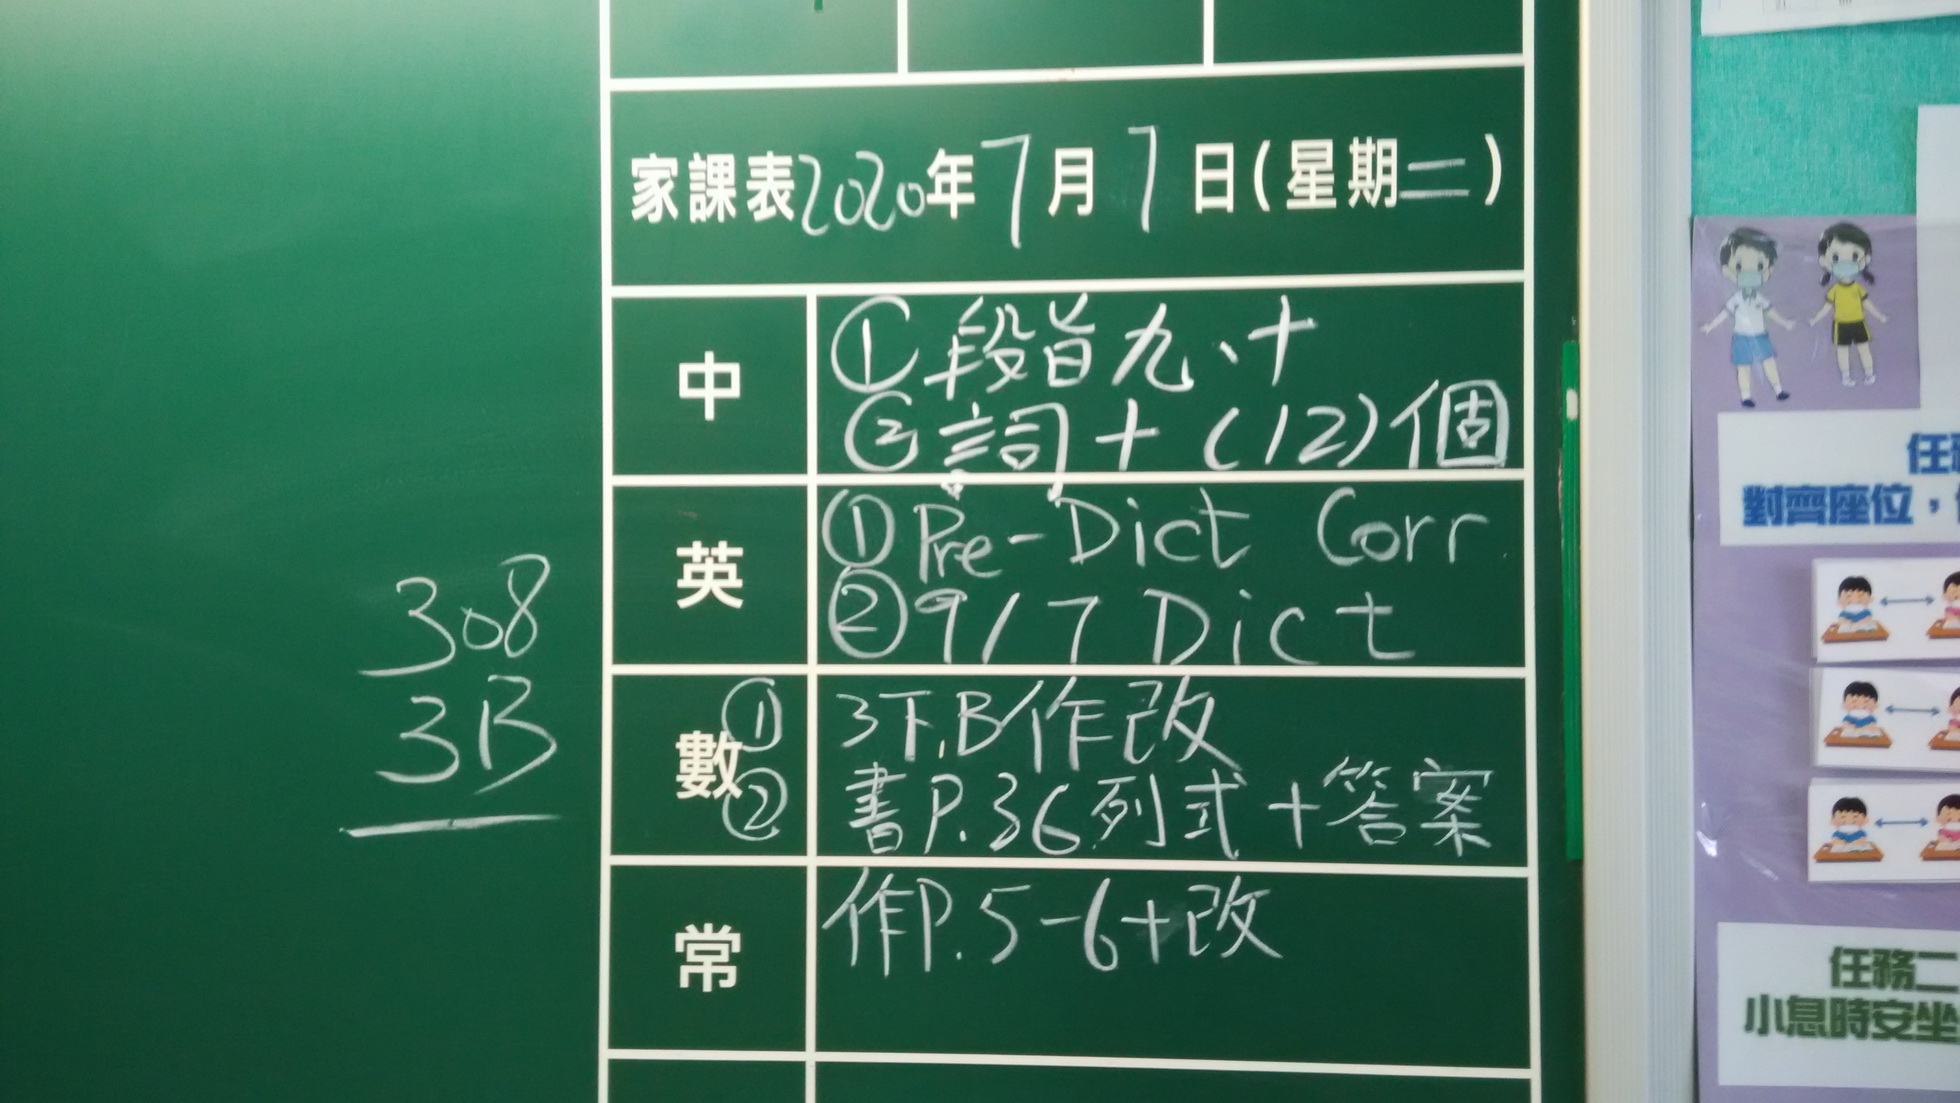 家課表2020年7月7日(星期二)
中
①段旨九、十
②詞十(12)個
英
①Pre-Dict Corr
②9/7 Dict
數
①3下B作改
②書P.36列式+答案
常
作P.5-6+改
308
3B
對齊座位，
任務二
小息時安坐